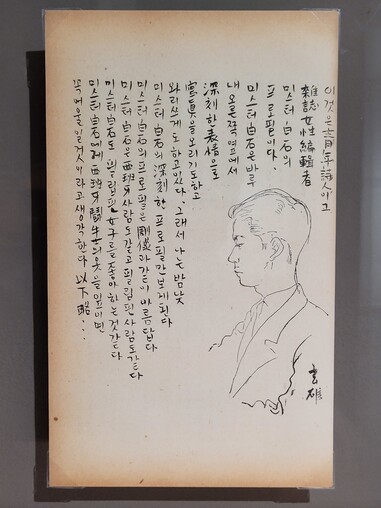 이것은 靑年詩人이고
雜誌女性編輯者
미스터 白石의
프로필이다.
미스터 白石은 바루
내 오른쪽 옆에서
深刻한 表情으로
寫眞을 오리기도 하고
와리쓰게도 하고 있다. 그래서 나는 밤낮
미스터 白石의 深刻한 프로필만 보게 된다
미스터 白石의 프로필은 彫像과 같이 아름답다
미스터 白石은 西班牙사람도 같고 필립핀사람도 같다
미스터 白石도 필립핀女子를 좋아하는 것 같다
미스터 白石에게 西班牙鬪牛士의 옷을 입히면
꼭 어울일 것이라고 생각한다 以下略..
玄雄